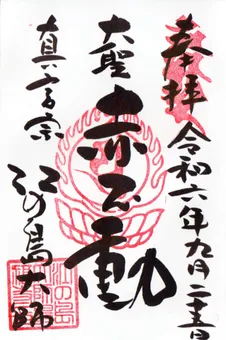 奉拝
令和六年九月二十三日
大聖
赤不動
真言宗
江の島大師